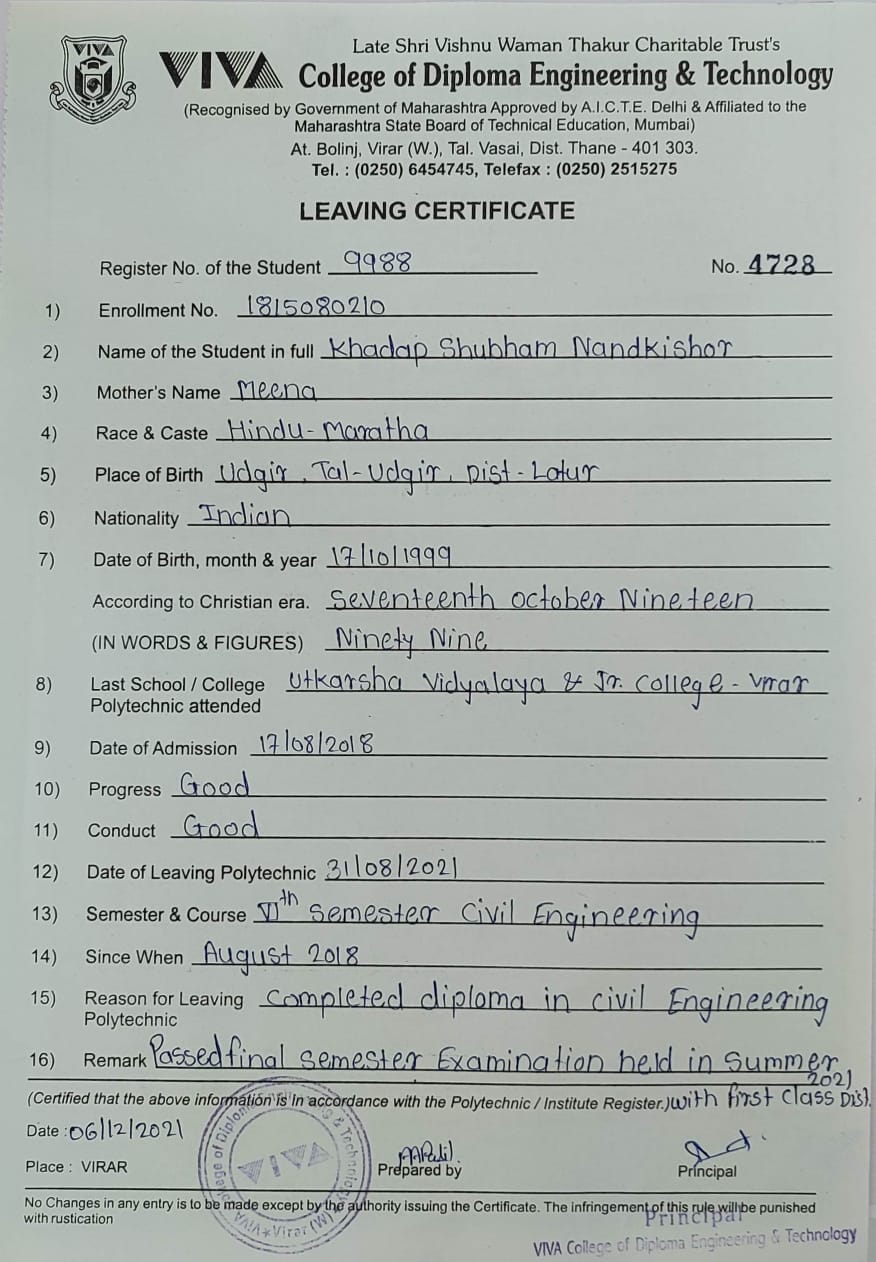 VIVA
Late Shri Vishnu Waman Thakur Charitable Trust's
VIVA College of Diploma Engineering & Technology
(Recognised by Government of Maharashtra Approved by A.I.C.T.E. Delhi & Affiliated to the
Maharashtra State Board of Technical Education, Mumbai)
At. Bolinj, Virar (W.), Tal. Vasai, Dist. Thane - 401 303.
Tel. : (0250) 6454745, Telefax : (0250) 2515275
LEAVING CERTIFICATE
Register No. of the Student 9988 No. 4728
1) Enrollment No. 1815080210
2) Name of the Student in full Khadap Shubham Nandkishor
3) Mother's Name Meena
4) Race & Caste Hindu-Maratha
5) Place of Birth Udgir, Tal-Udgir, Dist-Latur
6) Nationality Indian
7) Date of Birth, month & year 17/10/1999
According to Christian era. Seventeenth October Nineteen
(IN WORDS & FIGURES) Ninety Nine
8) Last School / College Utkarsha Vidyalaya & Jr. College - Virar
Polytechnic attended
9) Date of Admission 17/08/2018
10) Progress Good
11) Conduct Good
12) Date of Leaving Polytechnic 31/08/2021
13) Semester & Course VIth Semester Civil Engineering
14) Since When August 2018
15) Reason for Leaving Completed diploma in civil Engineering
Polytechnic
16) Remark Passed final Semester Examination held in Summer
2021
(Certified that the above information is in accordance with the Polytechnic / Institute Register.) with first class Dist.
Date : 06/12/2021
Place : VIRAR
Prepared by
Principal
VIVA College of Diploma Engineering & Technology
VIVA
Virar (W)
No Changes in any entry is to be made except by the authority issuing the Certificate. The infringement of this rule will be punished
with rustication
Principal
VIVA College of Diploma Engineering & Technology